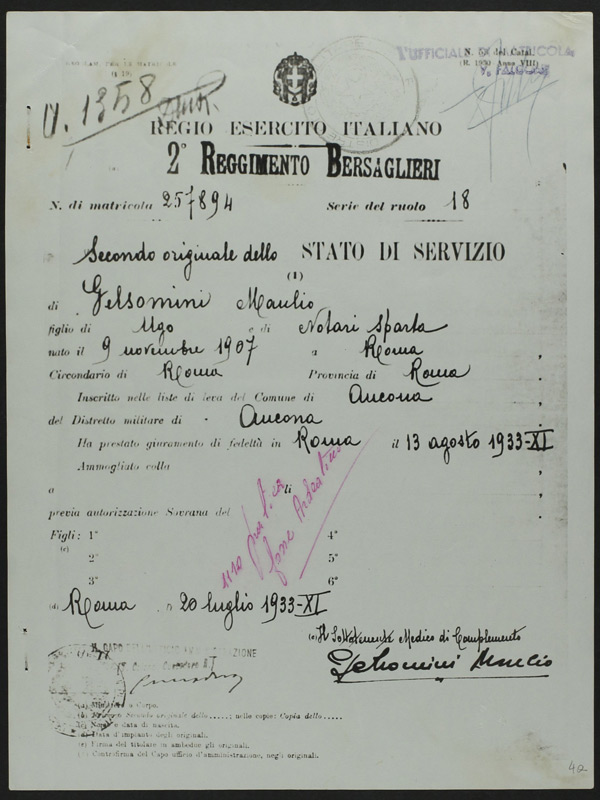 N. 53 del Catal.
(R. 1930 Anno VIII)
L'UFFICIALE DI MATRICOLA
V. 1358
REGIO ESERCITO ITALIANO
2° REGGIMENTO BERSAGLIERI
N. di matricola 257894 Serie del ruolo 18
Secondo originale dello STATO DI SERVIZIO
(1)
di Gelsomini Manlio
figlio di Ugo e di Notari Sparta
nato il 9 novembre 1907 a Roma
Circondario di Roma Provincia di Roma
Inscritto nelle liste di leva del Comune di Ancona
del Distretto militare di Ancona
Ha prestato giuramento di fedeltà in Roma il 13 agosto 1933-XI
Ammogliato colla
a li
previa autorizzazione Sovrana del
Figli: 1° 4°
(c)
2° 5°
3° 6°
fosse Ardeatine
(d) Roma 20 luglio 1933-XI
(e) Il Sottotenente Medico di Complemento
Gelsomini Manlio
(a) Ministero o Corpo.
(b) Secondo originale dello......; nelle copie: Copia dello.....
(c) Nome e data di nascita.
(d) Data d'impianto degli originali.
(e) Firma del titolare in ambedue gli originali.
Controfirma del Capo ufficio d'amministrazione, negli originali.
42